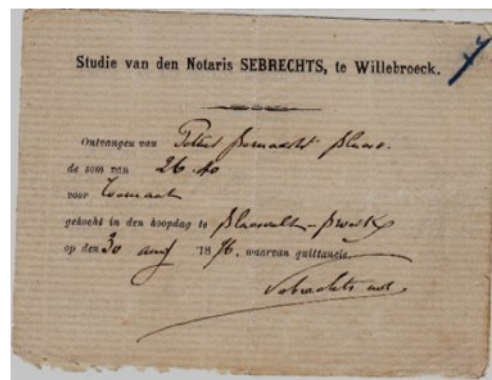 Studie van den Notaris SEBRECHTS, te Willebroeck.
Ontvangen van
de som van 26.40
voor toemaat
gekocht in den koopdag te Blaesvelt-
op den 30 aug 1876, waarvan quittancie.
Sebrechts not